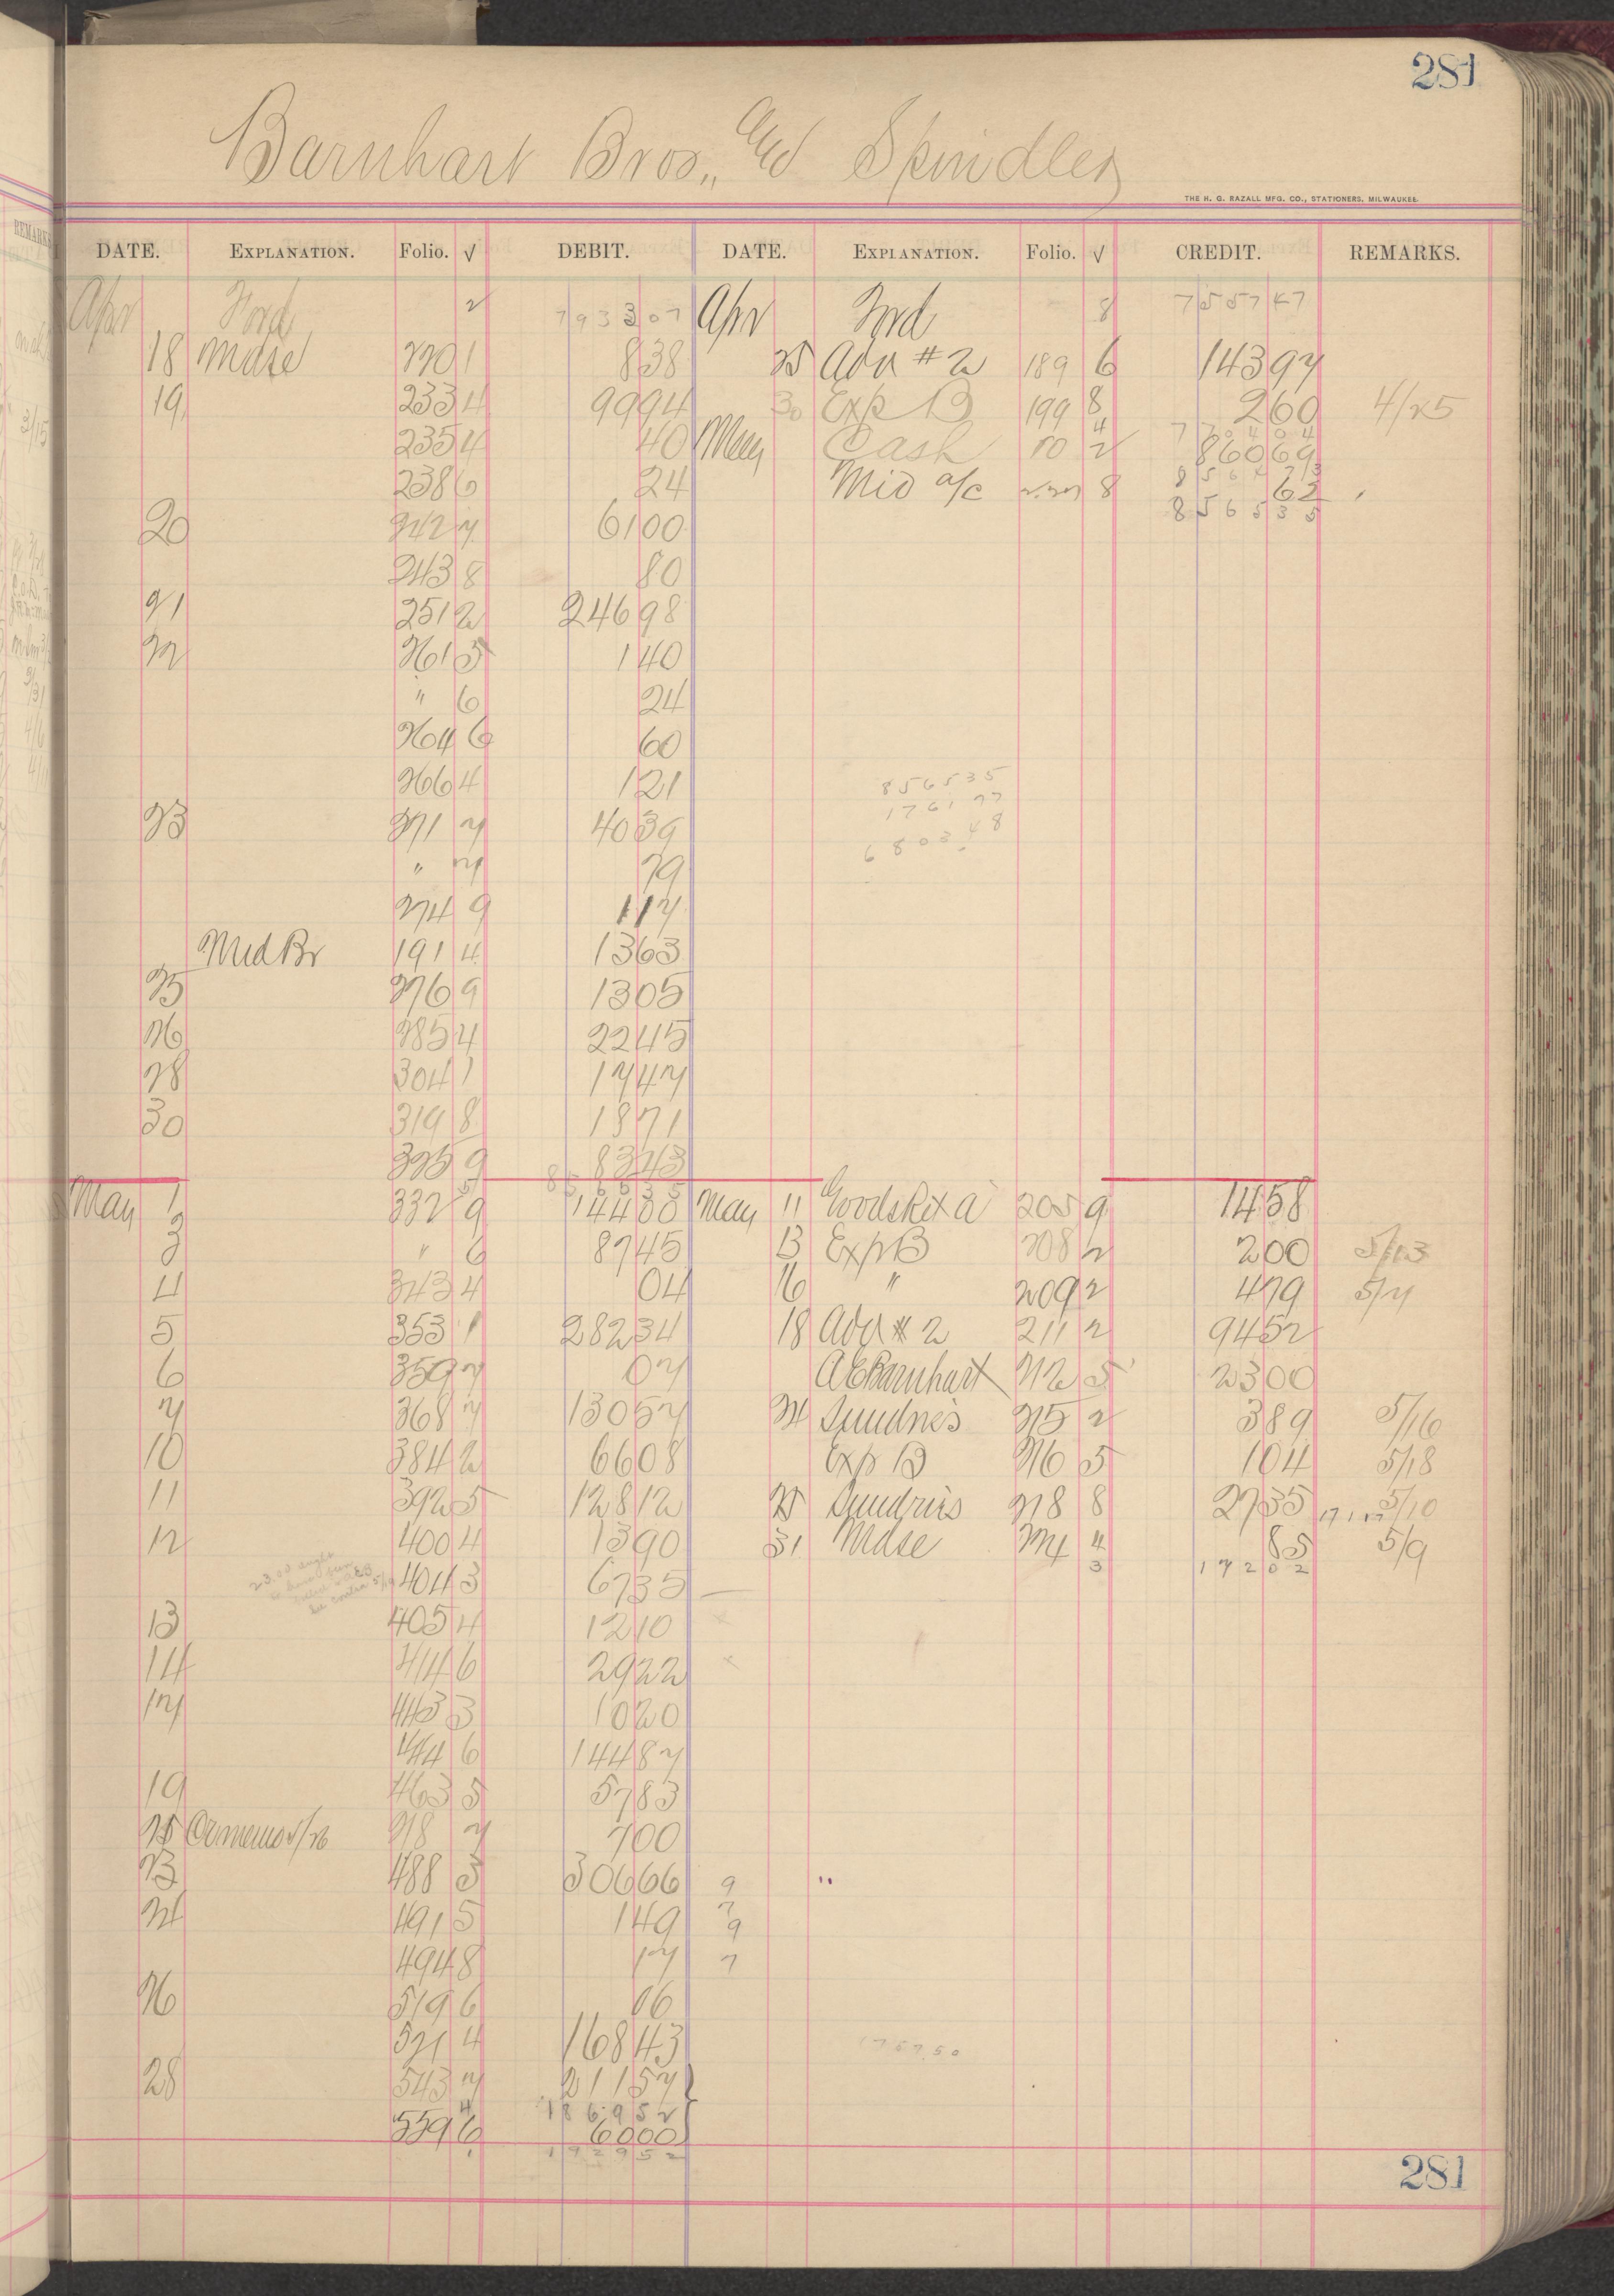 281
Barnhart Bros., and Spindler
THE H. G. RAZALL MFG. CO., STATIONERS, MILWAUKEE.
DATE. EXPLANATION. Folio. √ DEBIT. DATE. EXPLANATION. Folio. √ CREDIT. REMARKS.
Apr Ford 2 7933 07 Apr Ford 8 7557 47
18 Mdse 270 1 8 38 25 Adv # 2 189 6 143 97
19 233 4 99 94 30 Exp B 199 8 2 60 4/25
4 7704 04
235 4 40 May Cash 10 2 860 69
238 6 24 Mid a/c 8 62
8565 35
20 242 7 61 00
243 8 80
21 251 2 246 98
22 261 5 1 40
" 6 24
264 6 60
266 4 1 21 8565 35
1761 77
23 271 7 40 39 6803 48
" 7 79
274 9 1 17
Mid Br 191 4 13 63
25 276 9 13 05
26 285 4 22 45
28 304 1 17 47
30 319 8 18 71
325 9 83 43
May 1 332 9 144 00 May 11 205 9 14 58
3 " 6 87 45 13 Exp B 208 2 2 00 5/13
4 343 4 04 16 " 209 2 4 79 5/7
5 353 1 282 34 18 Adv # 2 211 2 94 52
6 359 7 07 A E Barnhart 212 5 23 00
7 368 7 130 57 24 Sundries 215 2 3 89 5/16
10 384 2 66 08 Exp B 216 5 1 04 5/18
11 392 5 128 12 25 Sundries 218 8 27 35 5/10
12 400 4 13 90 31 Mdse 4 85 5/9
3 172 02
404 3 67 35
13 405 4 12 10
14 414 6 29 22
17 443 3 10 20
444 6 144 87
19 463 5 57 83
25 Cr memo 5/26 218 7 7 00
23 488 3 306 66 9
24 491 5 1 49 7 9
494 8 17 7
26 519 6 16
521 4 168 43 1757 50
28 543 7 211 57
4 1869 52
559 6 60 00
1929 52
281